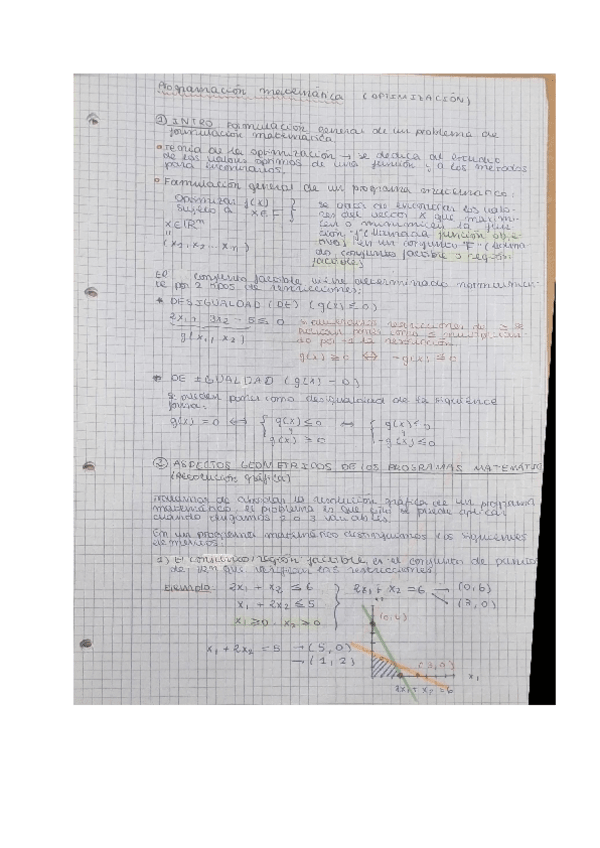 Programación matemática (OPTIMIZACIÓN)
① INTRO Formulación general de un problema de
formulación matemática
Teoría de la optimización → se dedica al estudio
de los valores óptimos de una función y a los métodos
para encontrarlos.
Formulación general de un programa matemático:
Optimizar f(x)
sujeto a x ∈ F
x ∈ ℝⁿ
(x₁, x₂ ... xₙ)
se trata de encontrar los valo-
res del vector x que maximi-
cen o minimicen la fun-
ción "f" (llamada función obje-
tivo) en un conjunto "F" (llama-
do conjunto factible o región
factible)
El conjunto factible viene determinado normalmen-
te por 2 tipos de restricciones:
* DESIGUALDAD (DE) (g(x) ≤ 0)
2x₁ + 3x₂ - 5 ≤ 0
g(x₁, x₂)
restricciones de ≥ se
por -1 la restricción.
g(x) ≥ 0 ⟺ -g(x) ≤ 0
* DE IGUALDAD (g(x) = 0)
Se pueden poner como desigualdad de la siguiente
forma:
g(x) = 0 ⟺ { g(x) ≤ 0 y g(x) ≥ 0 ⟺ { g(x) ≤ 0 y -g(x) ≤ 0
② ASPECTOS GEOMÉTRICOS DE LOS PROGRAMAS MATEMÁTI
(Resolución gráfica)
Tratamos de abordar la resolución gráfica de un programa
matemático. el problema es que sólo se puede aplicar
cuando tengamos 2 o 3 variables.
En un programa matemático distinguimos los siguientes
elementos:
1) El conjunto/región factible, es el conjunto de puntos
de ℝⁿ que verifican las restricciones.
Ejemplo 2x₁ + x₂ ≤ 6
x₁ + 2x₂ ≤ 5
x₁ ≥ 0 . x₂ ≥ 0
2x₁ + x₂ = 6 → (0,6)
→ (3,0)
x₁ + 2x₂ = 5 → (5,0)
→ (1,2)
(3,0)
x₁
2x₁ + x₂ = 6